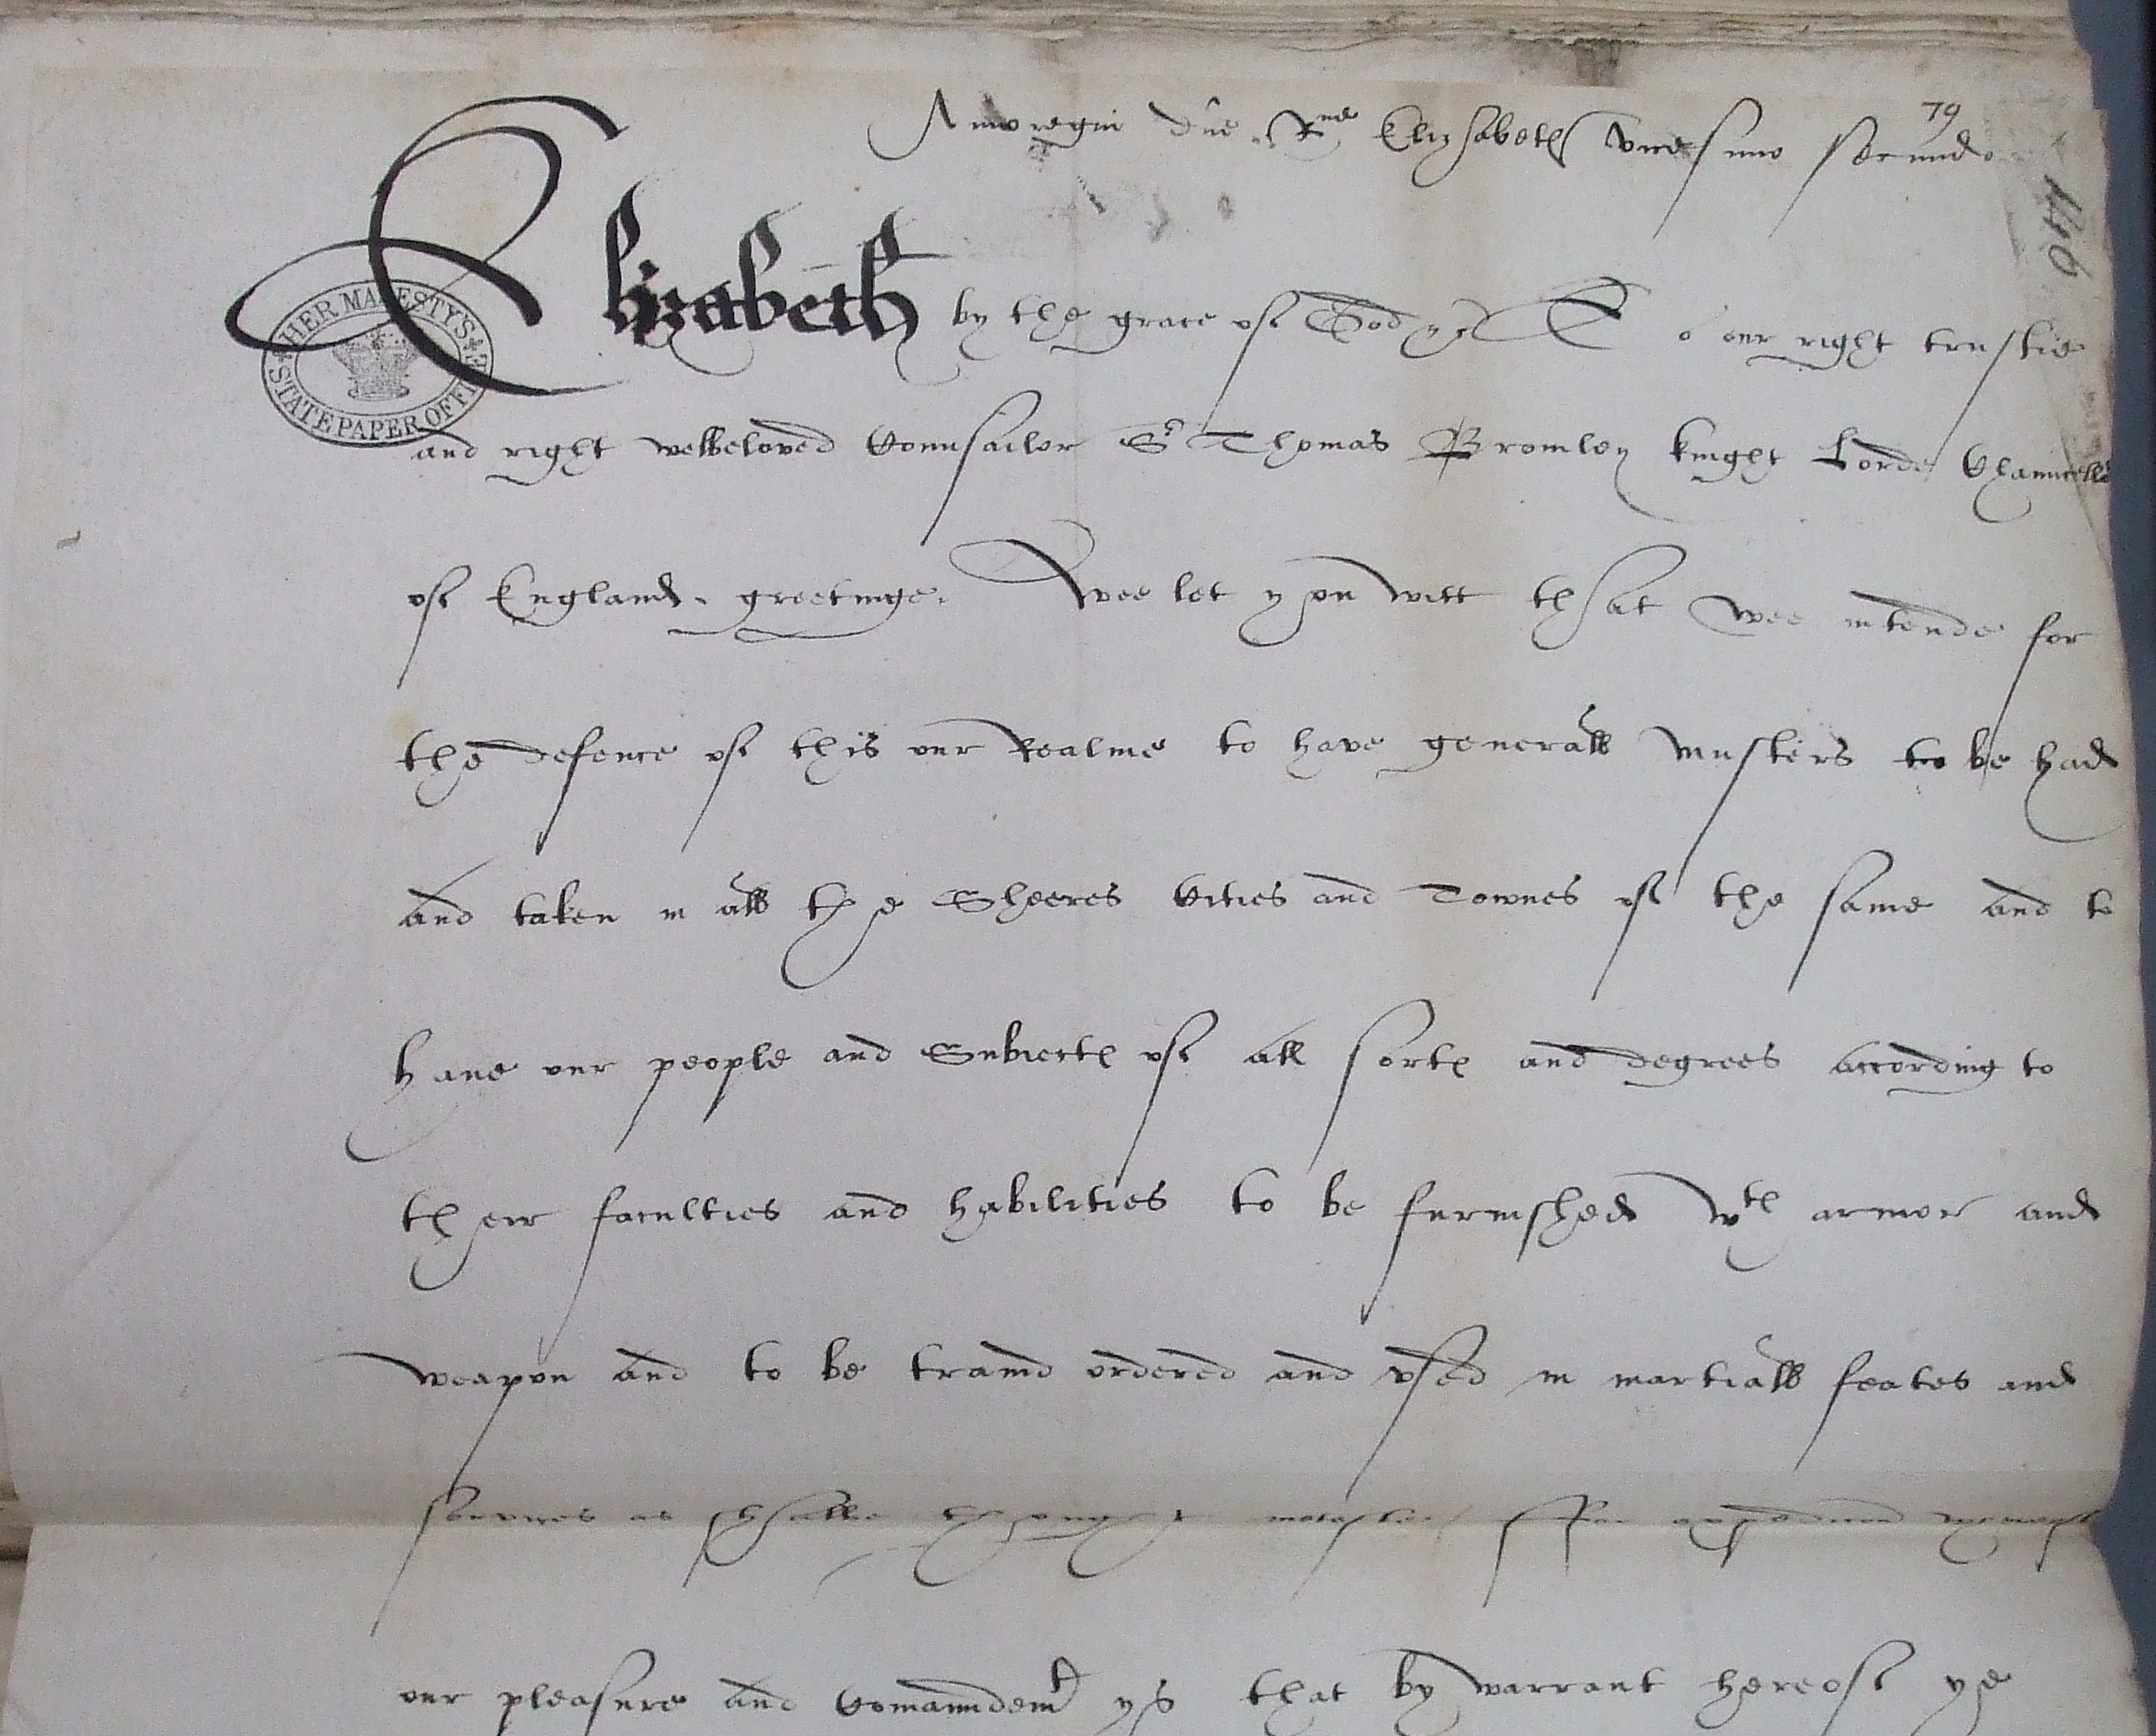 79
Anno regni dne Rne Elizabeth vicesimo secundo
146
Elizabeth by the grace of God &c To our right trustie
HER MAJESTY'S STATE PAPER OFFICE
and right welbeloved Counsailor Sr Thomas Bromley knight Lorde Chauncellor
of England. greetinge. Wee let you witt that wee intende for
the defence of this our Realme to have generall musters to be had
and taken in all the Sheeres Cities and Townes of the same and to
have our people and Subiectes of all sortes and degrees according to
their faculties and habilities to be furnished wth armor and
weapon and to be traind ordered and vsed in martiall feates and
services as shalbe thought
our pleasure and Comaundemt ys that by warrant hereof ye